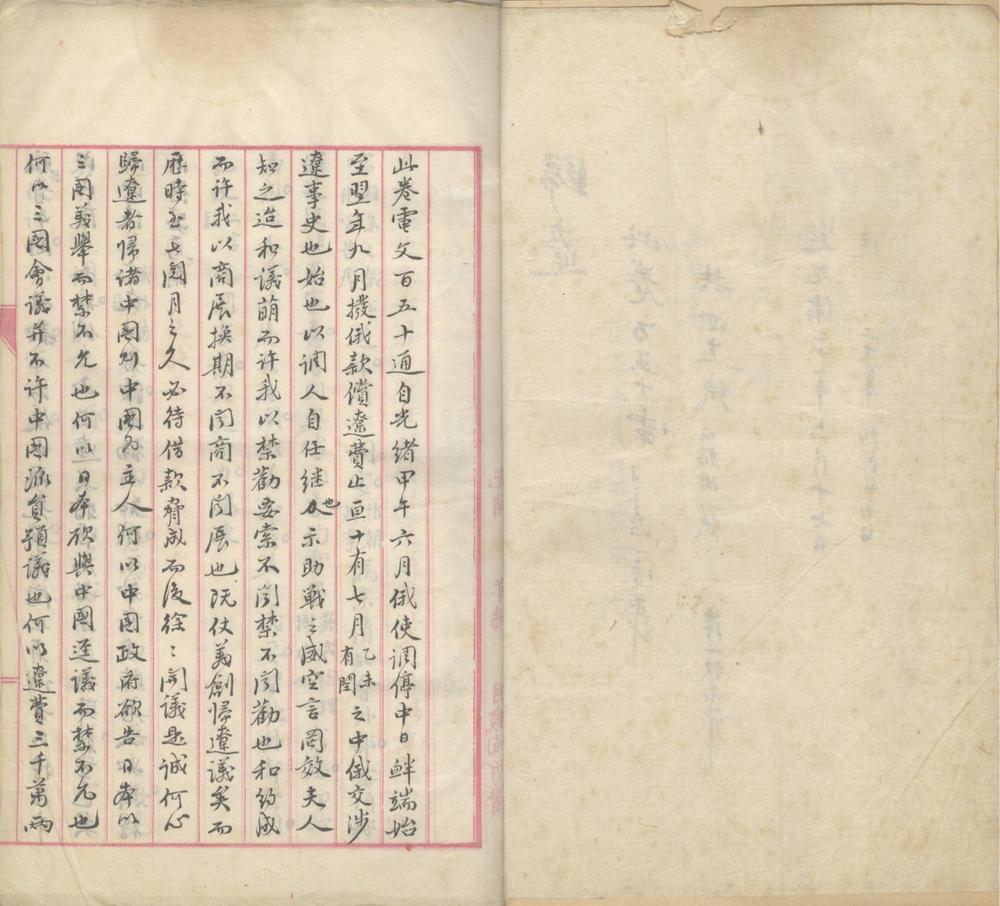 此卷電文百五十通自光緒甲午六月俄使調停中日衅端始
至翌年九月撥俄款償遼費止亘十有七月乙未有閏之中俄交涉
遼事史也始也以調人自任繼也示助戰之威空言罔效夫人
知之迨和議萌而許我以禁勸要索不聞禁不聞勸也和約成
而許我以商展換期不聞商不聞展也既仗義創歸遼議矣而
歷時至七閱月之久必待借款脅成而後徐〻開議是誠何心
歸遼者歸諸中國則中國為主人何以中國政府欲告日本以
三國義舉而禁不允也何以日本欲與中國逕議而禁不允也
何以三國會議并不許中國派員預議也何以遼費三千萬兩